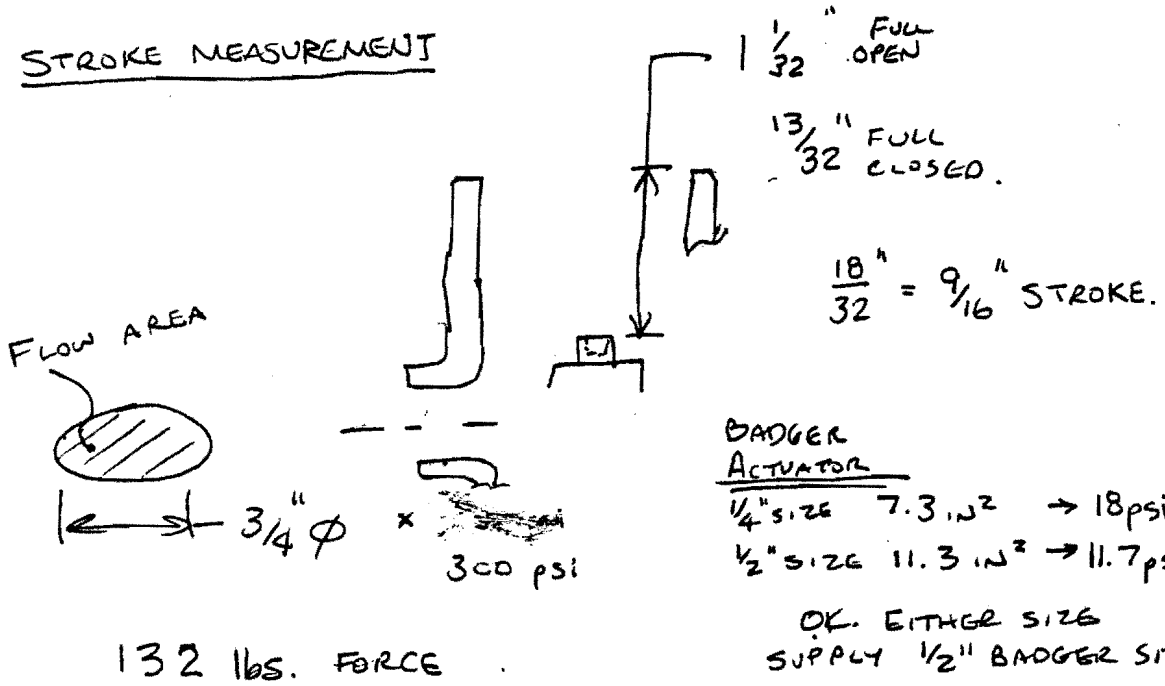 STROKE MEASUREMENT
1 1/32" FULL OPEN
13/32" FULL CLOSED.
18/32" = 9/16" STROKE.
FLOW AREA
3/4" φ x
300 psi
132 lbs. FORCE.
BADGER
ACTUATOR
1/4" SIZE 7.3 IN² → 18psi
1/2" SIZE 11.3 IN² → 11.7ps
OK. EITHER SIZE
SUPPLY 1/2" BADGER SI